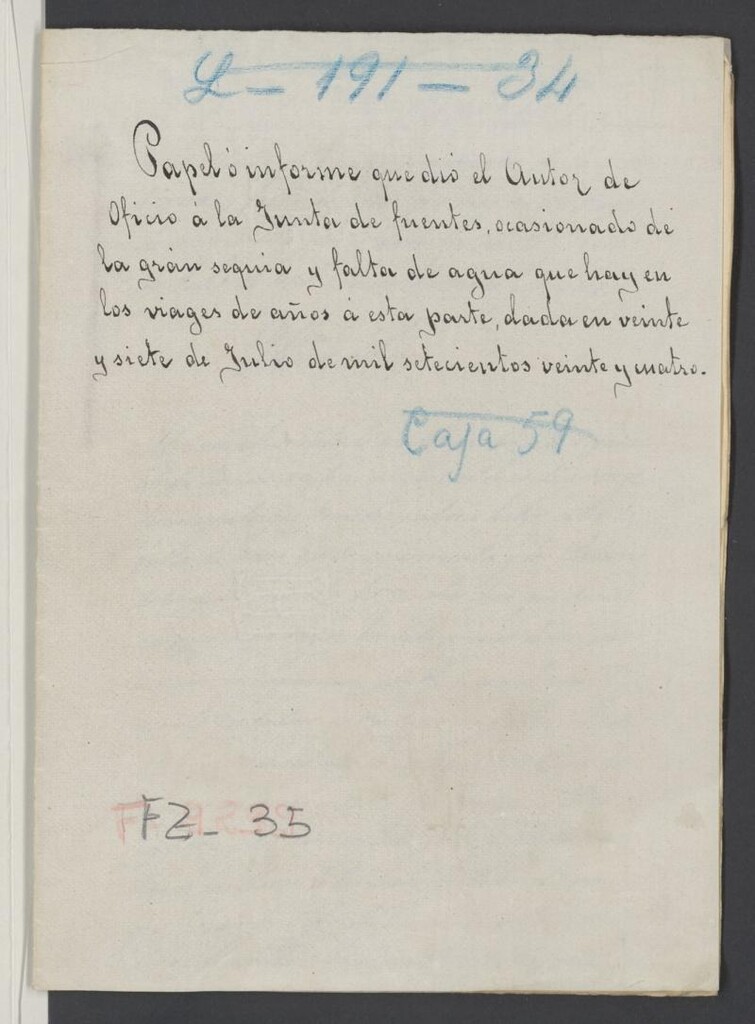 L - 191 - 34
Papel ó informe que dió el Autor de
Oficio á la Junta de fuentes, ocasionado de
la grán sequia y falta de agua que hay en
los viages de años á esta parte, dada en veinte
y siete de Julio de mil setecientos veinte y cuatro.
Caja 59
FZ - 35